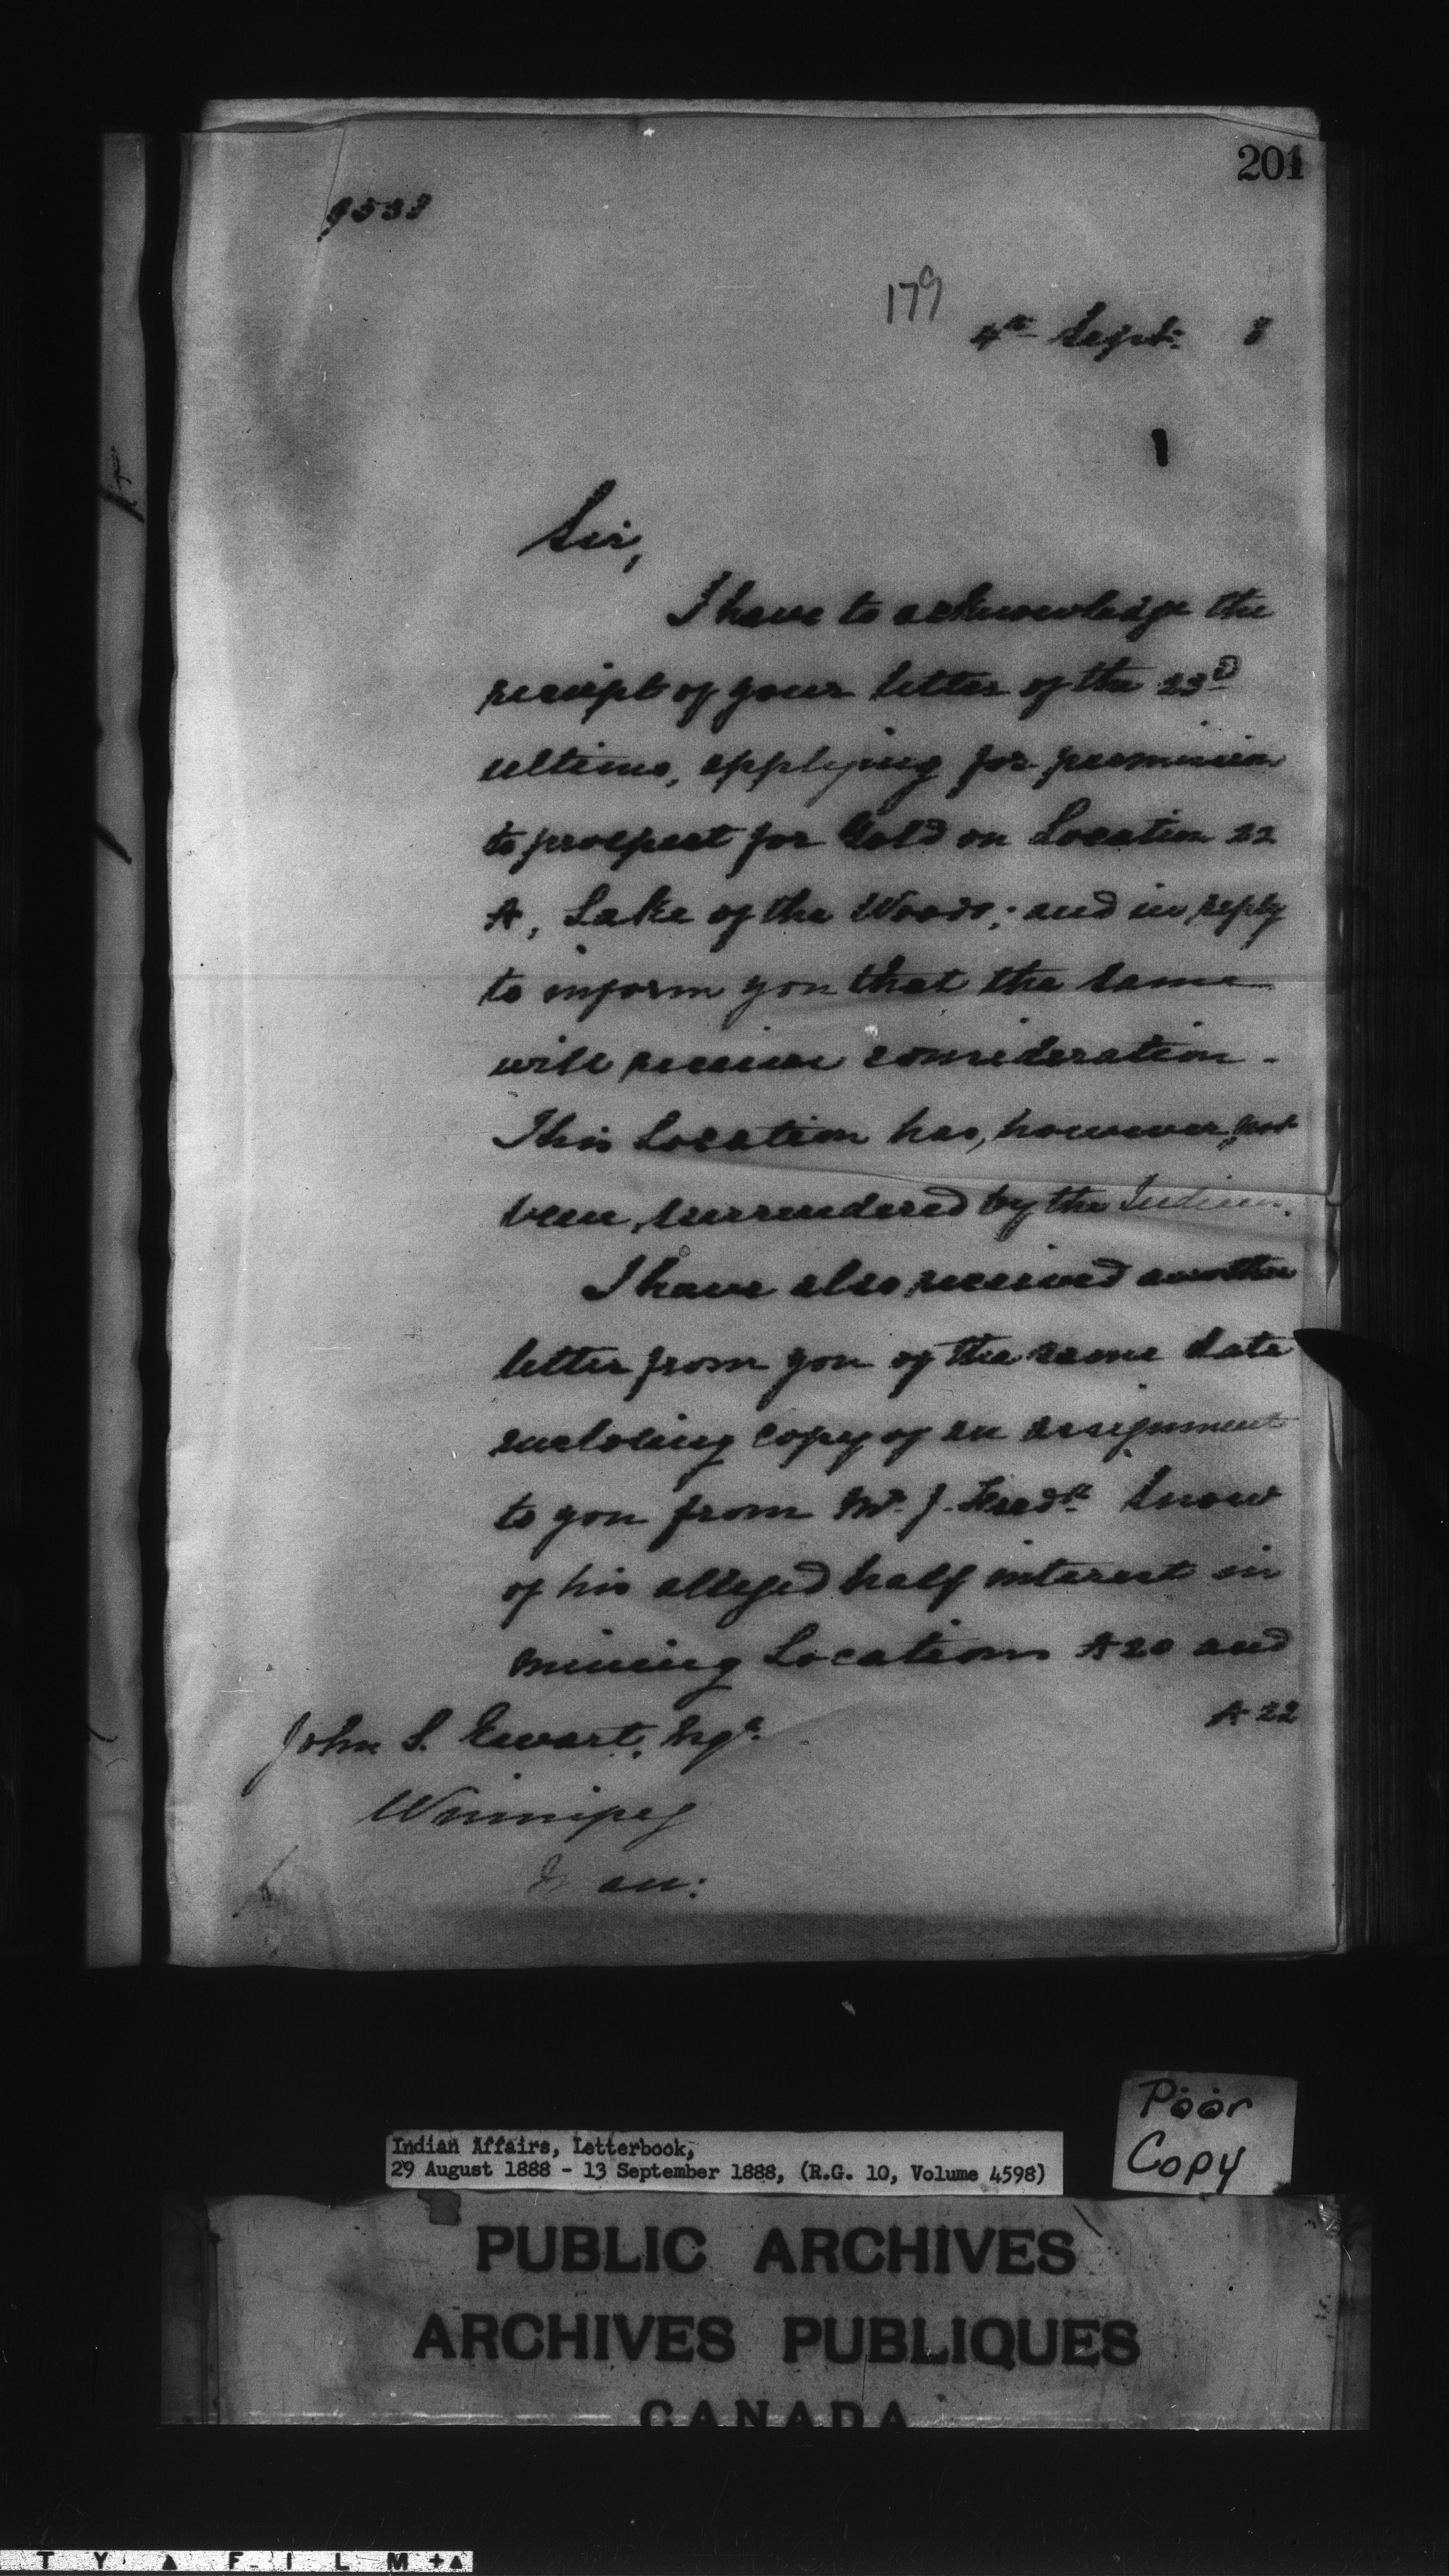 201
9533
179
4th Sept. 8
Sir,
I have to acknowledge the
receipt of your letter of the 23d
ultimo, applying for permission
to prospect for Gold on Location 22
A, Lake of the Woods; and in reply
to inform you that the same
will receive consideration.
This Location has, however, not
been surrendered by the Indians.
I have also received another
letter from you of the same date
enclosing copy of an assignment
to you from Mr. J. Fredk. Snow
of his alleged half interest in
mining Locations A 20 and
A 22
John S. Ewart, Esqr.
Winnipeg
Man:
Poor
Copy
Indian Affairs, Letterbook,
29 August 1888 - 13 September 1888, (R.G. 10, Volume 4598)
PUBLIC ARCHIVES
ARCHIVES PUBLIQUES
CANADA